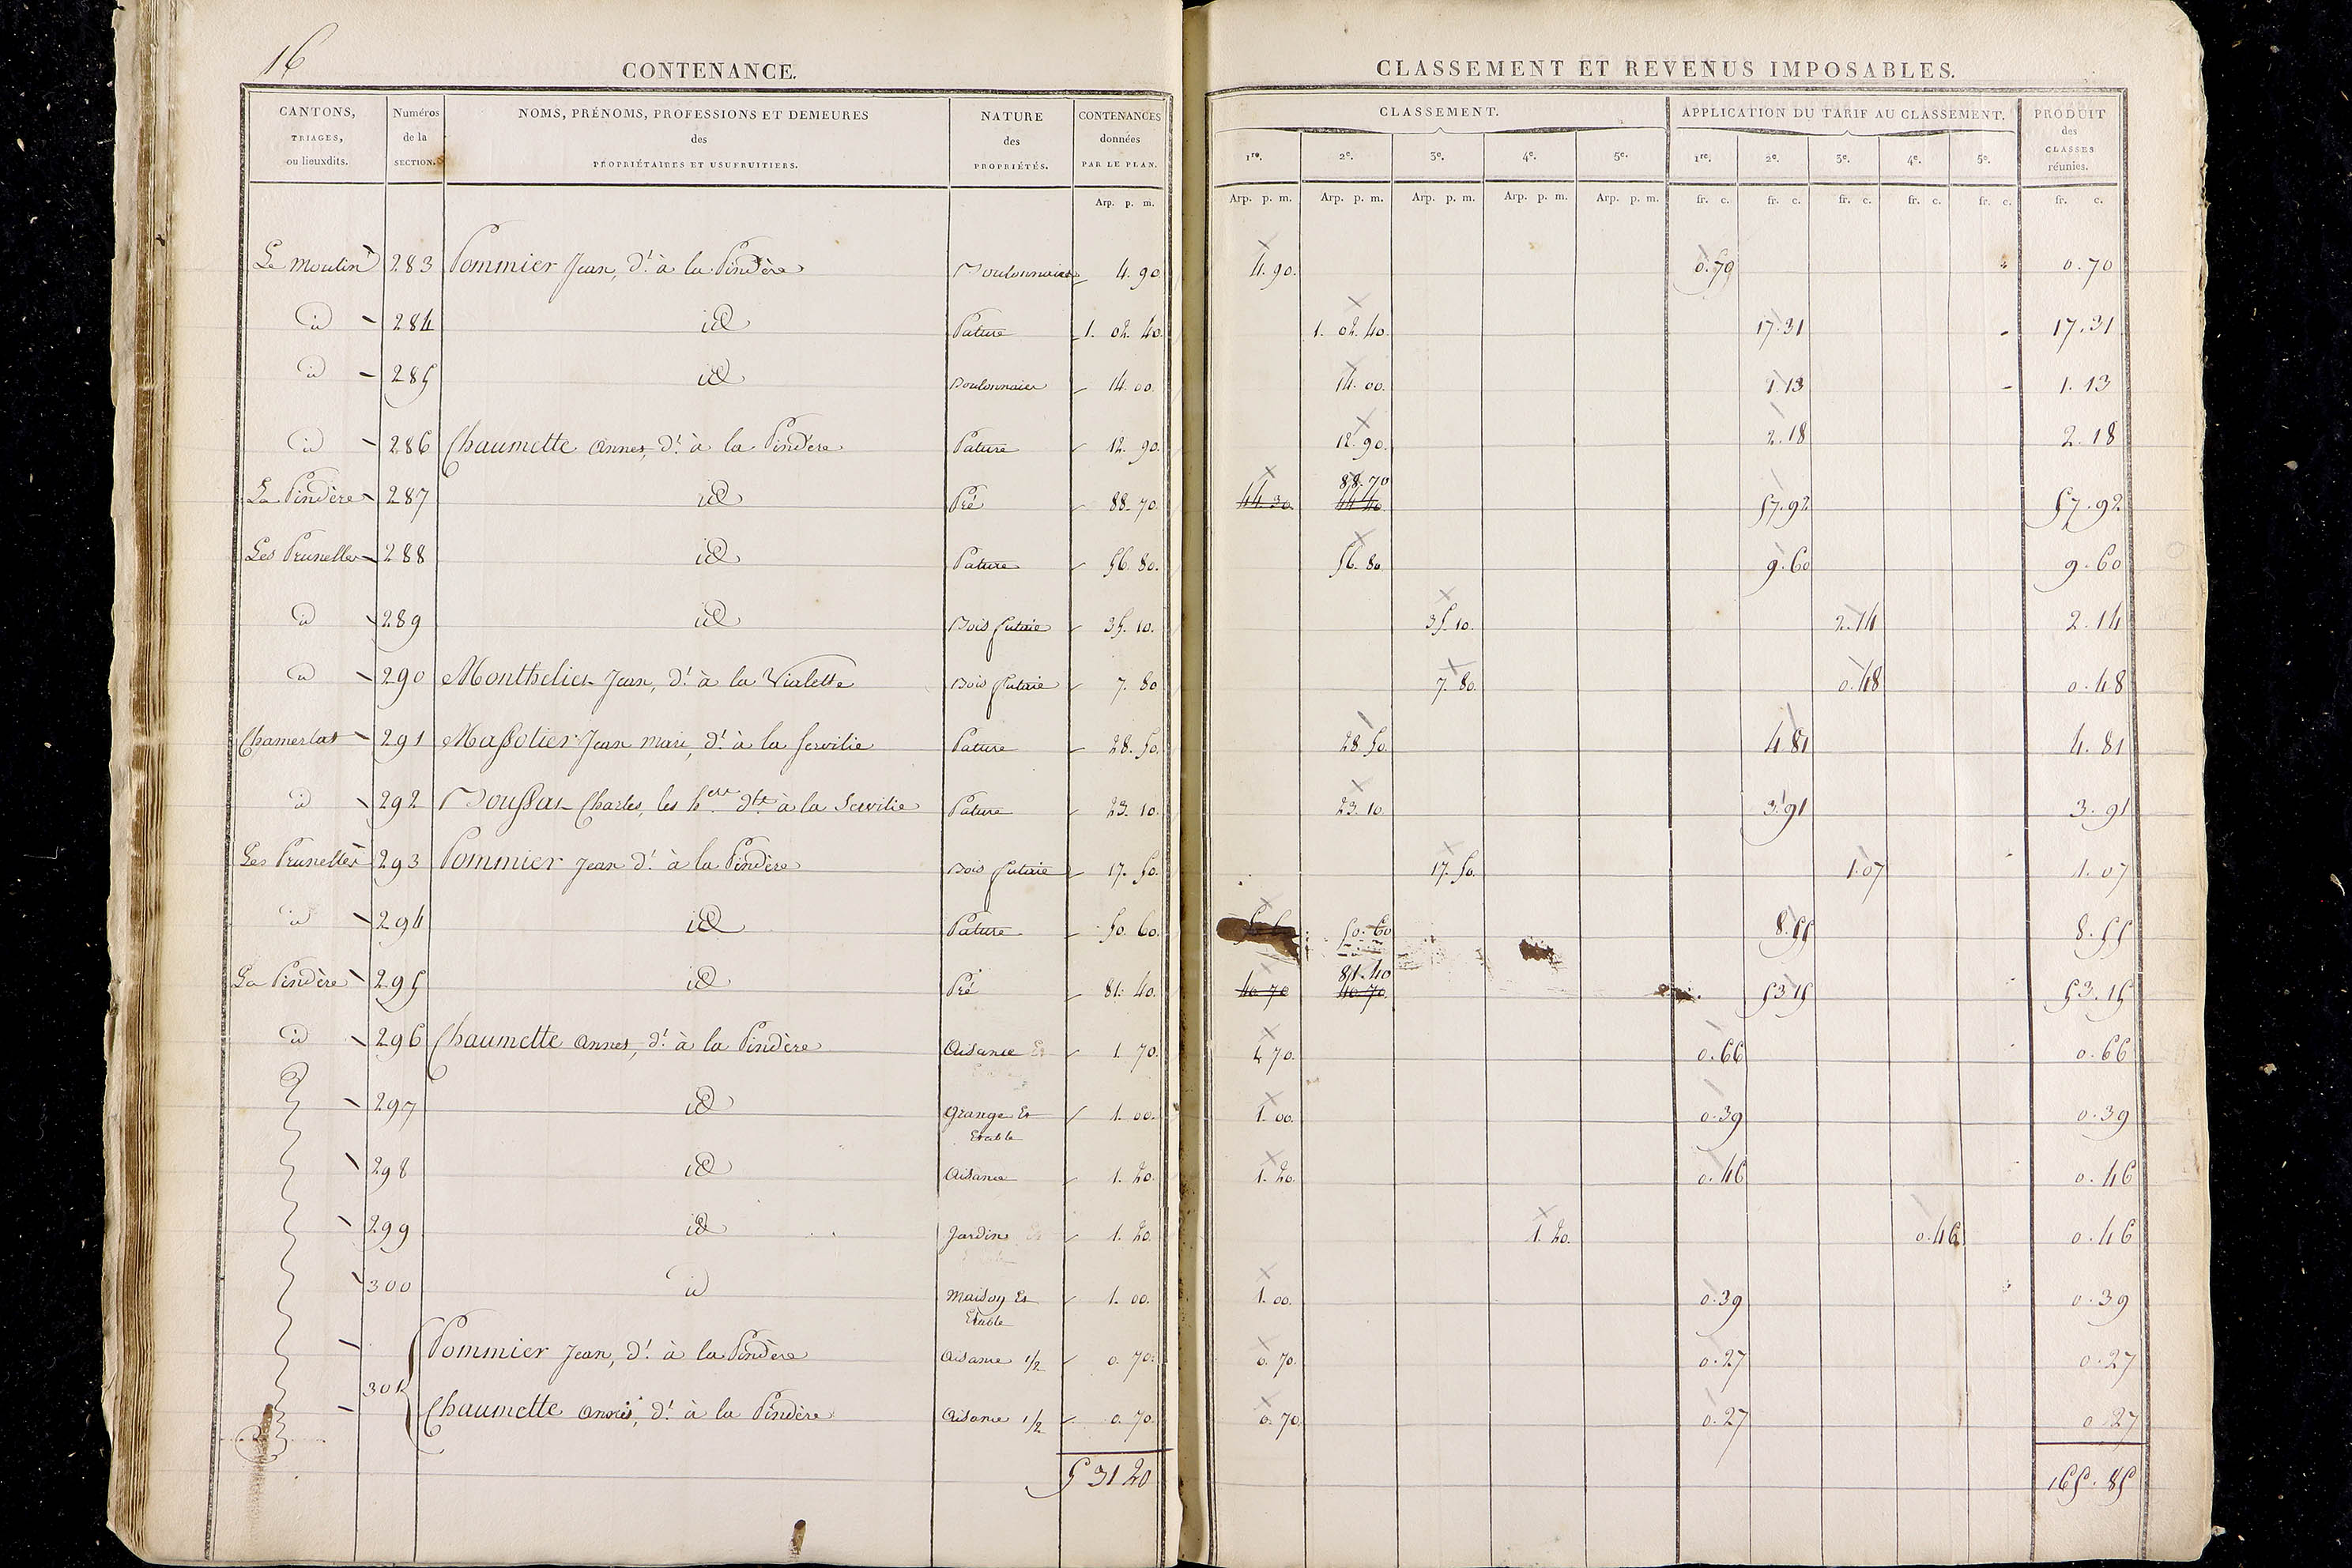 16
CONTENANCE.
CANTONS, TRIAGES, ou lieuxdits. | Numéros de la SECTION. | NOMS, PRÉNOMS, PROFESSIONS ET DEMEURES des PROPRIÉTAIRES ET USUFRUITIERS. | NATURE des PROPRIÉTÉS. | CONTENANCES données PAR LE PLAN.
Arp. p. m.
Le Moulin 283 Pommier Jean, dt. à la Pindère 4. 90.
id 284 id Pature 1. 02. 40.
id 285 id 14. 00.
id 286 Chaumette Annes, dt. à la Pindère Pature 12. 90.
La Pindère 287 id Pré 88. 70.
Les Prunelles 288 id Pature 56. 80.
id 289 id Bois futaie 35. 10.
id 290 Monthelier Jean, dt. à la Vialette Bois futaie 7. 80
Chamerlat 291 Massolier Jean marie, dt. à la Servilie Pature 28. 50.
id 292 Boussac Charles, les hers. dts. à la Servilie Pature 23. 10.
Les Prunelles 293 Pommier Jean dt. à la Pindère Bois futaie 17. 50.
id 294 id Pature 50. 60.
La Pindère 295 id Pré 81. 40.
id 296 Chaumette Annes, dt. à la Pindère Aisance 1. 70.
297 id Grange Et Etable 1. 00.
298 id Aisance 1. 20.
299 id Jardin 1. 20.
300 id Maison Et Etable 1. 00.
301 Pommier Jean, dt. à la Pindère Aisance 1/2 0. 70.
Chaumette Annes, dt. à la Pindère Aisance 1/2 0. 70.
5 31 20
CLASSEMENT ET REVENUS IMPOSABLES.
CLASSEMENT. | APPLICATION DU TARIF AU CLASSEMENT. | PRODUIT des CLASSES réunies.
1re. 2e. 3e. 4e. 5e. 1re. 2e. 3e. 4e. 5e.
Arp. p. m. Arp. p. m. Arp. p. m. Arp. p. m. Arp. p. m. fr. c. fr. c. fr. c. fr. c. fr. c. fr. c.
4. 90. 0. 70 0. 70
1. 02. 40. 17. 31 17. 31
14. 00. 1 13 1. 13
12. 90. 2. 18 2. 18
88. 70
44. 30. 44 40. 57. 92 57. 92
56. 80. 9. 60 9. 60
35. 10. 2. 14 2. 14
7. 80. 0. 48 0. 48
28 50. 4 81 4. 81
23. 10. 3. 91 3. 91
17. 50. 1. 07 1. 07
50. 60 8. 55 8. 55
81. 40
40. 70 40. 70. 53 15 53. 15
1. 70. 0. 66 0. 66
1. 00. 0. 39 0. 39
1. 20. 0. 46 0. 46
1. 20. 0. 46 0. 46
1. 00. 0. 39 0. 39
0. 70. 0. 27 0. 27
0. 70. 0. 27 0. 27
165. 85